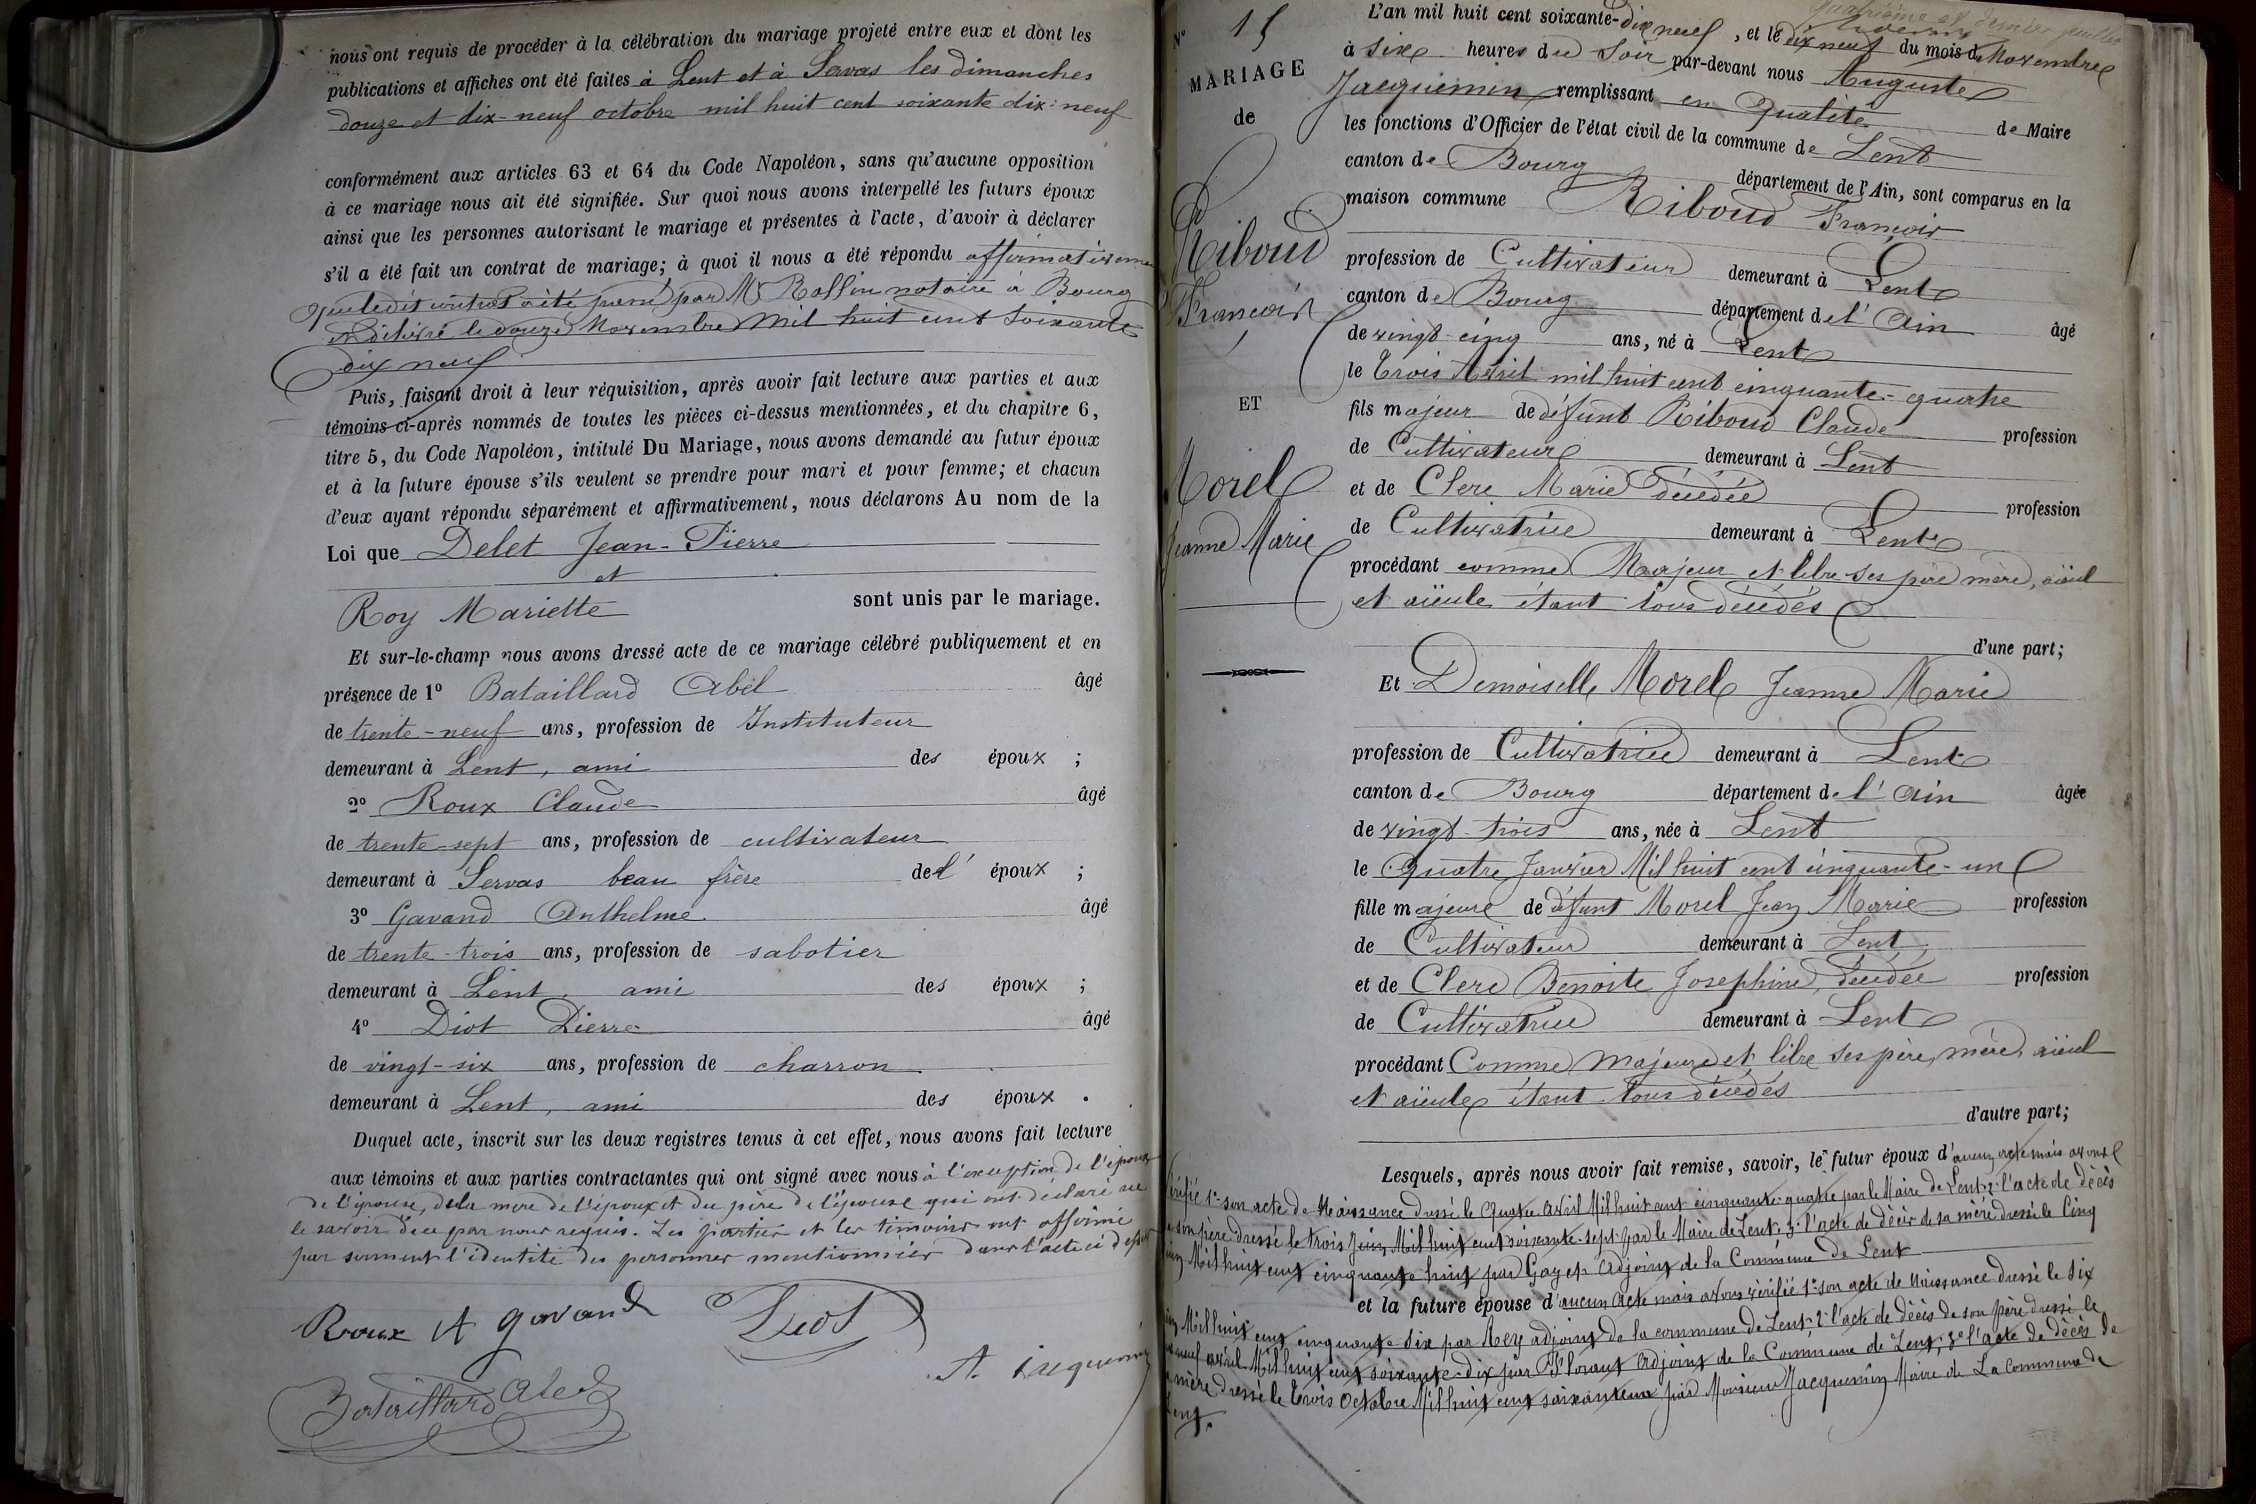 nous ont requis de procéder à la célébration du mariage projeté entre eux et dont les
publications et affiches ont été faites à Lent et à Servas les dimanches
douze et dix-neuf octobre mil huit cent soixante dix-neuf
conformément aux articles 63 et 64 du Code Napoléon, sans qu'aucune opposition
à ce mariage nous ait été signifiée. Sur quoi nous avons interpellé les futurs époux
ainsi que les personnes autorisant le mariage et présentes à l'acte, d'avoir à déclarer
s'il a été fait un contrat de mariage; à quoi il nous a été répondu affirmativeme
que ledit contrat a été passé par Me Rollin notaire à Bourg
le douze Novembre Mil huit cent soixante
dix neuf
Puis, faisant droit à leur réquisition, après avoir fait lecture aux parties et aux
témoins ci-après nommés de toutes les pièces ci-dessus mentionnées, et du chapitre 6,
titre 5, du Code Napoléon, intitulé Du Mariage, nous avons demandé au futur époux
et à la future épouse s'ils veulent se prendre pour mari et pour femme; et chacun
d'eux ayant répondu séparément et affirmativement, nous déclarons Au nom de la
Loi que Delet Jean-Pierre
et
Roy Mariette sont unis par le mariage.
Et sur-le-champ nous avons dressé acte de ce mariage célébré publiquement et en
présence de 1º Bataillard Abel âgé
de trente-neuf ans, profession de Instituteur
demeurant à Lent, ami des époux ;
2º Roux Claude âgé
de trente-sept ans, profession de cultivateur
demeurant à Servas beau frère de l' époux ;
3º Gavand Anthelme âgé
de trente-trois ans, profession de sabotier
demeurant à Lent, ami des époux ;
4º Diot Pierre âgé
de vingt-six ans, profession de charron
demeurant à Lent, ami des époux .
Duquel acte, inscrit sur les deux registres tenus à cet effet, nous avons fait lecture
aux témoins et aux parties contractantes qui ont signé avec nous à l'exception de l'époux
de l'épouse, de la mère de l'époux et du père de l'épouse qui ont déclaré ne
le savoir de ce par nous requis. Les parties et les témoins ont affirmé
par serment l'identité des personnes mentionnées dans l'acte ci dessus
Roux A gavand Diot
A. Jacquemin
Bataillard Abel
Nº 15
MARIAGE
de
Riboud
François
ET
Morel
Jeanne Marie
L'an mil huit cent soixante-dix neuf, et le dix neuf du mois de Novembre
à six heures du Soir par-devant nous Auguste
Jacquemin remplissant en qualité de Maire
les fonctions d'Officier de l'état civil de la commune de Lent
canton de Bourg département de l'Ain, sont comparus en la
maison commune Riboud François
profession de Cultivateur demeurant à Lent
canton de Bourg département de l'Ain âgé
de vingt-cinq ans, né à Lent
le Trois Avril mil huit cent cinquante-quatre
fils majeur de défunt Riboud Claude profession
de Cultivateur demeurant à Lent
et de Clerc Marie décédée profession
de Cultivatrice demeurant à Lent
procédant comme Majeur et libre ses père mère, aïeul
et aïeule étant tous décédés
d'une part;
Et Demoiselle Morel Jeanne Marie
profession de Cultivatrice demeurant à Lent
canton de Bourg département de l'Ain âgée
de vingt-trois ans, née à Lent
le Quatre Janvier Mil huit cent cinquante-un
fille majeure de défunt Morel Jean Marie profession
de Cultivateur demeurant à Lent
et de Clerc Benoite Josephine, décédée profession
de Cultivatrice demeurant à Lent
procédant Comme majeure et libre ses père, mère, aïeul
et aïeule étant tous décédés
d'autre part;
Lesquels, après nous avoir fait remise, savoir, le futur époux d'aucun acte mais avons
vérifié 1º son acte de Naissance dressé le Quatre Avril Mil huit cent cinquante-quatre par le Maire de Lent; 2º l'acte de décès
de son père dressé le trois Juin Mil huit cent soixante-sept par le Maire de Lent; 3º l'acte de décès de sa mère dressé le Cinq
Mil huit cent cinquante huit par Goyep Adjoint de la Commune de Lent
et la future épouse d'aucun Acte mais avons vérifié 1º son acte de Naissance dressé le Six
Mil huit cent cinquante Six par Rey adjoint de la commune de Lent; 2º l'acte de décès de son père dressé le
neuf avril Mil huit cent soixante-dix par Florant Adjoint de la Commune de Lent; 3º l'acte de décès de
sa mère dressé le Trois Octobre Mil huit cent soixante par Monsieur Jacquemin Maire de La Commune de
Lent.